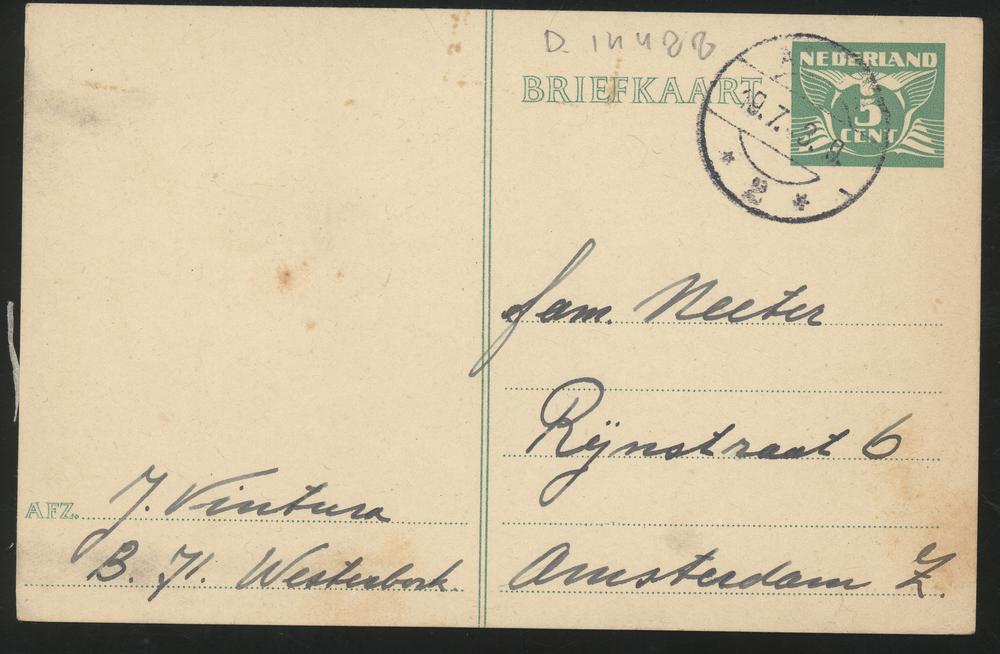 BRIEFKAART
NEDERLAND
5
CENT
19.7.
2
fam. Neeter
Rijnstraat 6
Amsterdam Z.
AFZ. J. Vintura
B. 71. Westerbork.